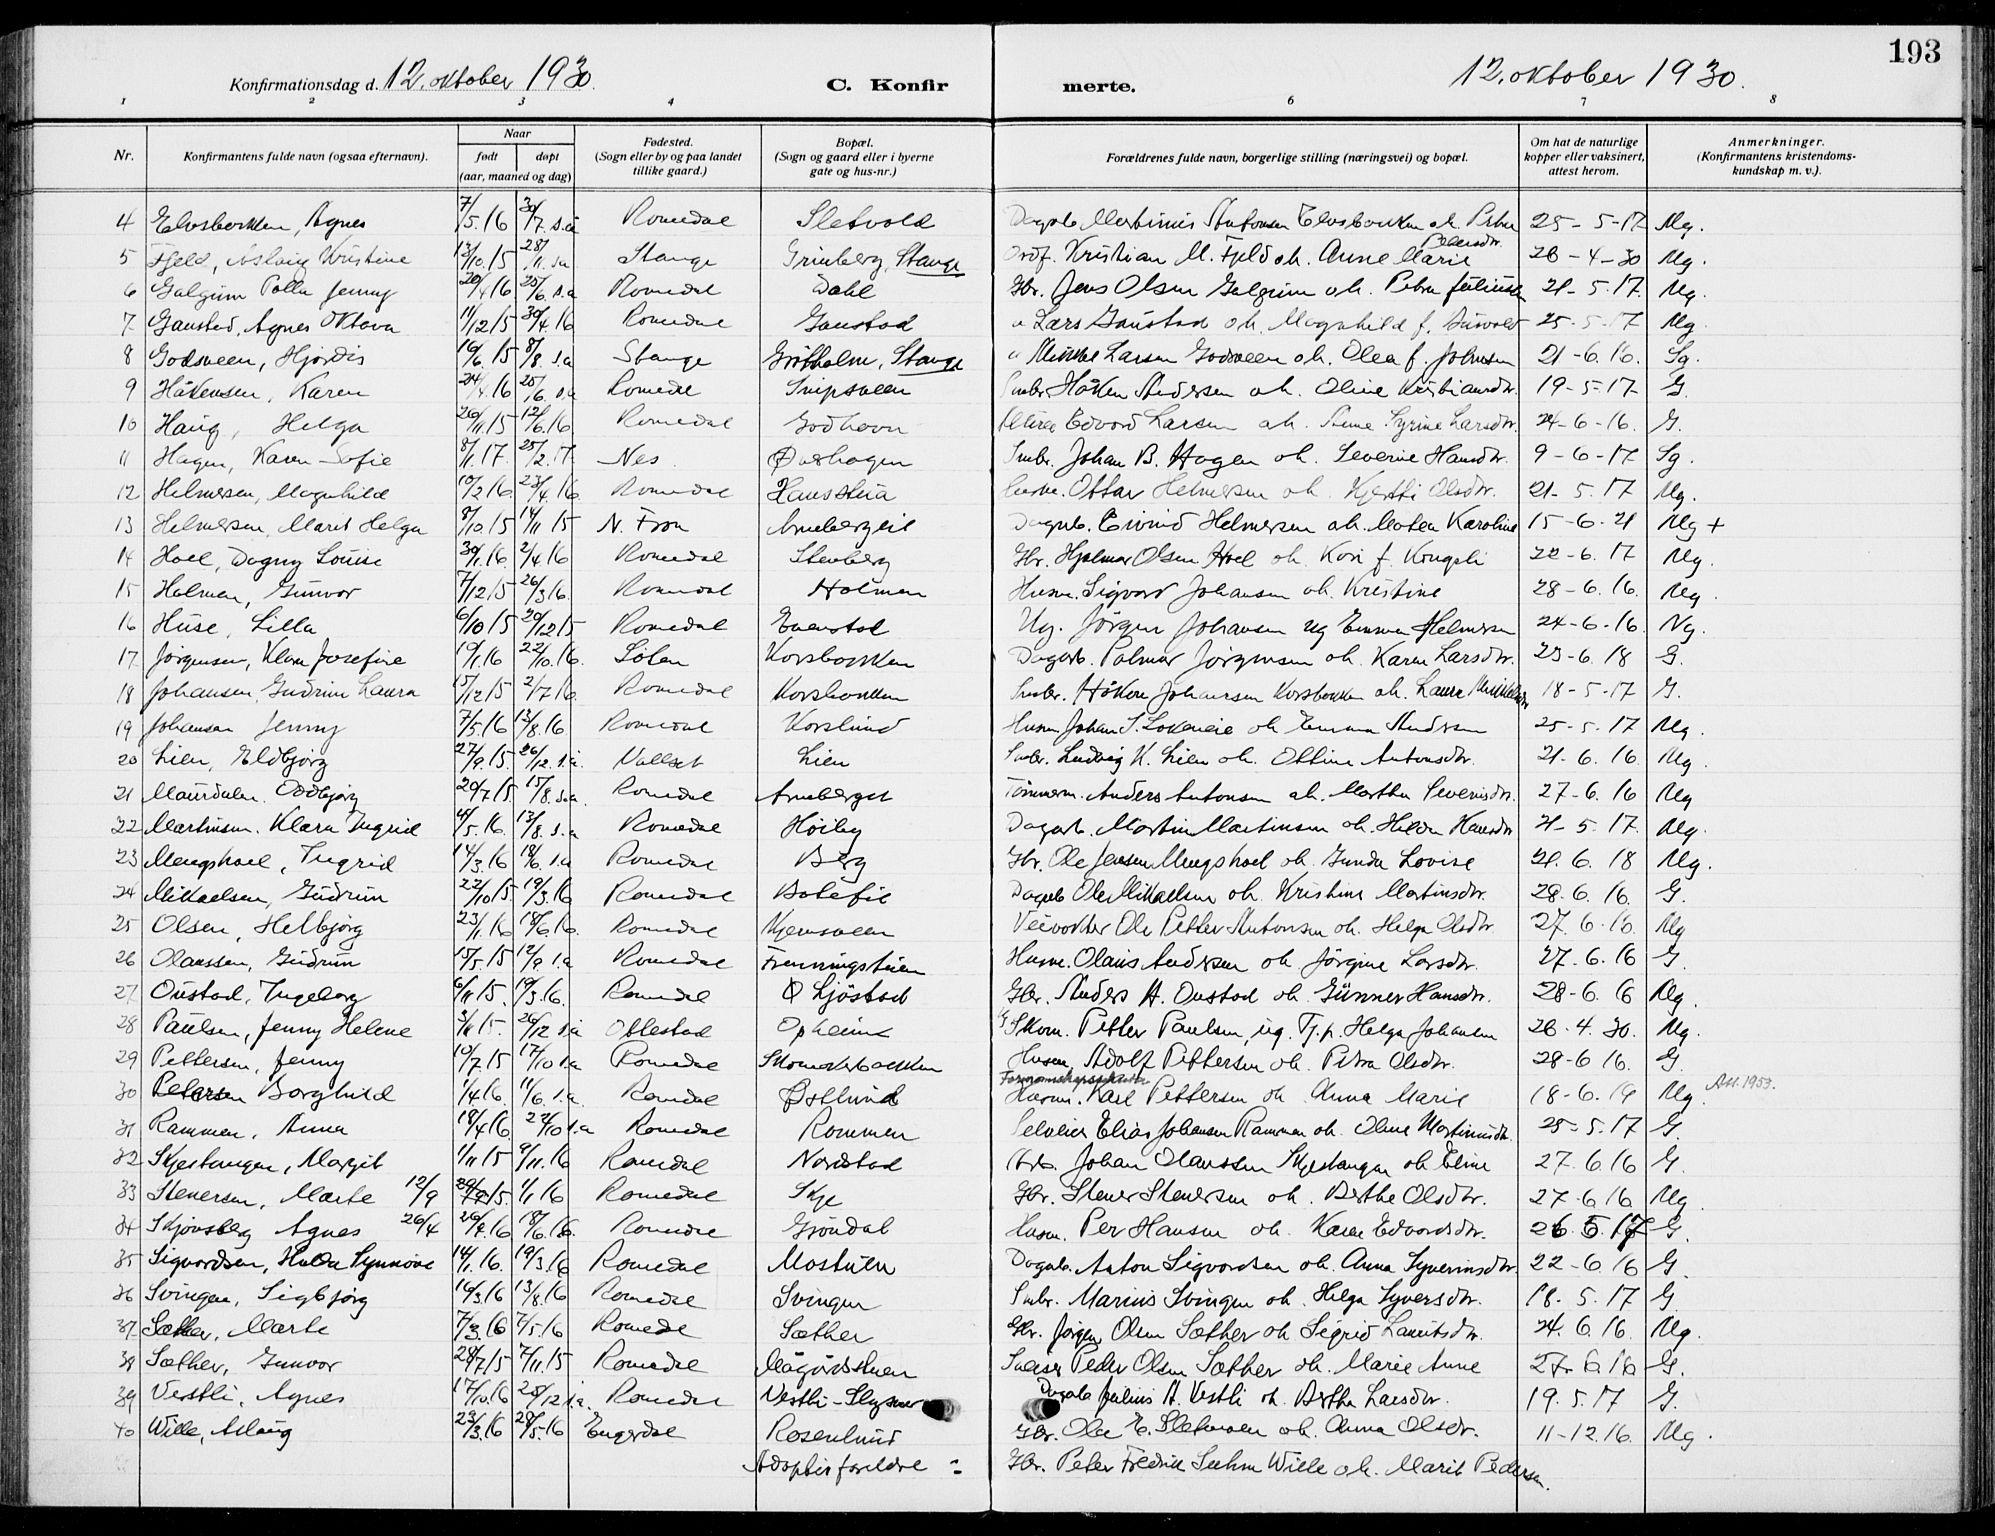 193
Konfirmationsdag d. 12. oktober 1930. C. Konfir merte. 12. oktober 1930.
1 2 3 4 6 7 8
Nr. Konfirmantens fulde navn (ogsaa efternavn). Naar født døpt (aar, maaned og dag) Fødested. (Sogn eller by og paa landet tillike gaard.) Bopæl. (Sogn og gaard eller i byerne gate og hus-nr.) Forældrenes fulde navn, borgerlige stilling (næringsvei) og bopæl. Om hat de naturlige kopper eller vaksinert, attest herom. Anmerkninger. (Konfirmantens kristendoms-kundskap m. v.).
4 Elvsbakken, Agnes 7/5.16 30/7 s.å Romedal Sletvold 25-5-17 Mg.
5 Fjeld, Aslaug Kristine 13/10.15 28/11 s.a Stange Grinberg, Stange Kristian M. Fjeld oh. Anne Marie Pedersdtr. 28-4-30 Mg.
6 Galgum Polla Jenny 20/4 16 25/6 s.a Romedal Dahl Gbr. Jens Olsen Galgum oh. Petra 21-5.17. Mg.
7 Gaustad, Agnes Oktava 11/12 15 30/4 16 Romedal Gaustad " Lars Gaustad oh. Magnhild f. 25-5-17 Mg.
8 Godsveen, Hjørdis 16/6.15 8/8 s.a Stange Stange " Mikkel Larsen Godsveen oh. Olea f. Johnsen 21-6.16. Sg.
9 Håkensen, Karen 24/4.16 25/6. s.a Romedal Snipsveen Smbr. Håken Andersen oh. Oline Kristiansdtr. 19-5-17 G.
10 Haug, Helga 26/11.15 12/6.16 Romedal Godhavn Edvard Larsen oh. Anne Syrine Larsdtr. 24-6-16. G.
11 Hagen, Karen Sofie 8/1.17. 25/2.17. Nes Øvrhagen Smbr. Johan B. Hagen oh. Severine Hansdtr. 9-6-17 Sg.
12 Helmersen, Magnhild 10/2 16. 23/4.16. Romedal Hansstua Husm. Ottar Helmersen oh. Kjersti Olsdtr. 21-5.17 Mg.
13 Helmersen, Marit Helga 8/10.15 14/11 15 N. Fron Arneberget Dagarb. Eivind Helmersen oh. Karoline 15-6-21 Mg +
14 Hoel, Dagny Louise 30/1.16. 2/4.16 Romedal Stenberg Gbr. Hjalmar Olsen Hoel oh. Kari f. Kongsli 22-6.17 Mg.
15 Holmen, Gunvor 7/12 15 26/3 16. Romedal Holmen Husm. Sigvard Johansen oh. Kristine 28-6.16. Mg.
16 Huse, Lilla 6/10 15 26/12 15 Romedal Evenstad Ug. Jörgen Johansen ug Emma Helmersen 24-6-16. Ng.
17 Jörgensen, Klara Josefine 19/1.16 22/10.16. Löten Korsbakken Dagarb. Palmar Jörgensen oh. Karen Larsdtr. 23-6.18 G.
18 Johansen, Gudrun Laura 15/12 15 2/7 16. Romedal Korsbakken Smbr. Håken Johansen Korsbakken oh. Laura 18-5-17 G.
19 Johansen Jenny 7/5.16 13/8.16 Romedal Korslund Husm. Johan oh Emma Andersen 25-5.17 Mg.
20 Lien, Eldbjørg 27/9.15. 26/12. s.å. Vallset Lien Smbr. Ludvig K. Lien oh. Ottine Antonsdtr. 21-6.16. Mg.
21 Maurdalen. Oddbjørg 20/7 15. 15/8. s.a. Romedal Arneberget Tömmerm. Anders Antonsen oh. Marthe Severinsdtr. 27-6.16 Mg
22 Martinsen. Klara Ingrid 4/5.16. 13/8. s.a Romedal Høiby Dagarb. Martin Martinsen oh. Hilda Hansdtr 21-5.17. Mg.
23 Mengshoel, Ingrid 14/3.16 18/6. s.a Romedal Berg Gbr. Ole Jensen Mengshoel oh. Gunda Lovise 21.6.18 Mg.
24 Mikaelsen, Gudrun 22/10 15. 19/3.16 Romedal Dagarb Ole Mikaelsen oh. Kristine Martinsdtr. 28.6.16. G.
25 Olsen, Helbjørg 23/1.16 18/6.16. Romedal Kjemsveen Veivokter Ole Petter Antonsen oh. Helga Olsdtr. 27.6.16. Mg
26 Olaussen, Gudrun 15/5 15 12/9 s.a Romedal Frenningstuen Husm. Olaus Andersen oh Jörgine Larsdtr. 27-6.16 G.
27 Oustad, Ingeborg 6/11 15. 19/3.16. Romedal Ø Ljøstad Gbr. Anders H. Oustad oh. Gunner Hansdtr. 28-6.16 Mg.
28 Paulsen, Jenny Helene 3/11 15. 26/12 s.å Ottestad Opheim Skom. Petter Paulsen, ug. Tj.p. Helga Johansen 28.4.30. Mg.
29 Pettersen, Jenny 10/7.15 17/10 s.a Romedal Skomakerbakken Husm. Adolf Pettersen oh. Petra Olsdtr. 28-6 16. G.
30 Petersen Borghild 1/4 16. 11/6. s.a. Romedal Østlund Husm. Karl Pettersen oh. Anna Marie 18-6.19 Mg. Att. 1953.
31 Rammen, Anna 19/4 16. 22/10 s.a Romedal Rommen Selveier Elias Johansen Rammen oh. Oline Martinusdtr. 25-5.17 G.
32 Skjestangen, Margit 1/11 15 9/11.16 Romedal Nordstad Johan Olaussen Skjestangen oh Eline 27.6.16 G.
33 Stenersen, Marte 12/9 15. 1/1 16 Romedal Skje Gbr. Stener Stenersen oh. Berthe Olsdtr. 27-6 16 Mg
34 Skjønsberg Agnes 26/4 26/4.16 18/6.16. Romedal Grøndal Husm. Per Hansen oh. Karen Edvardsdtr. 26.5.17 G.
35 Sigvardsen, Hulda Synnøve 14/1.16. 19/3.16 Romedal Mostuen Dagarb. Anton Sigvardsen oh. Anna Syverinsdtr. 22-6.16 G.
36 Svingen, Sigbjørg 16/3.16 13/8.16 Romedal Svingen Smbr. Marius Svingen oh. Helga Syversdtr. 18-5.17 G.
37 Sæther, Marte 7/3.16 7/5.16 Romedal Sæther Gbr. Jørgen Olsen Sæther oh Sigrid Lauritsdtr. 24.6.16. Mg.
38 Sæther, Gunvor 28/7 15 7/11.15 Romedal Peder Olsen Sæther oh. Marie Anne 27-6 16 G.
39 Vestli, Agnes 17/10.16 28/12 s.a. Romedal Vestli - Dagarb Julius A. Vestli oh. Bertha Larsdtr. 19.5.17 G.
40 Wille, Aslaug 23/3.16 28/5.16 Engerdal Rosenlund Gbr. Ole E. Sletmoen oh. Anna Olsdtr. 11-12.16. Mg.
Adoptivforeldre : Gbr. Peter Fredrik Suhm Wille oh. Marit Pedersen.